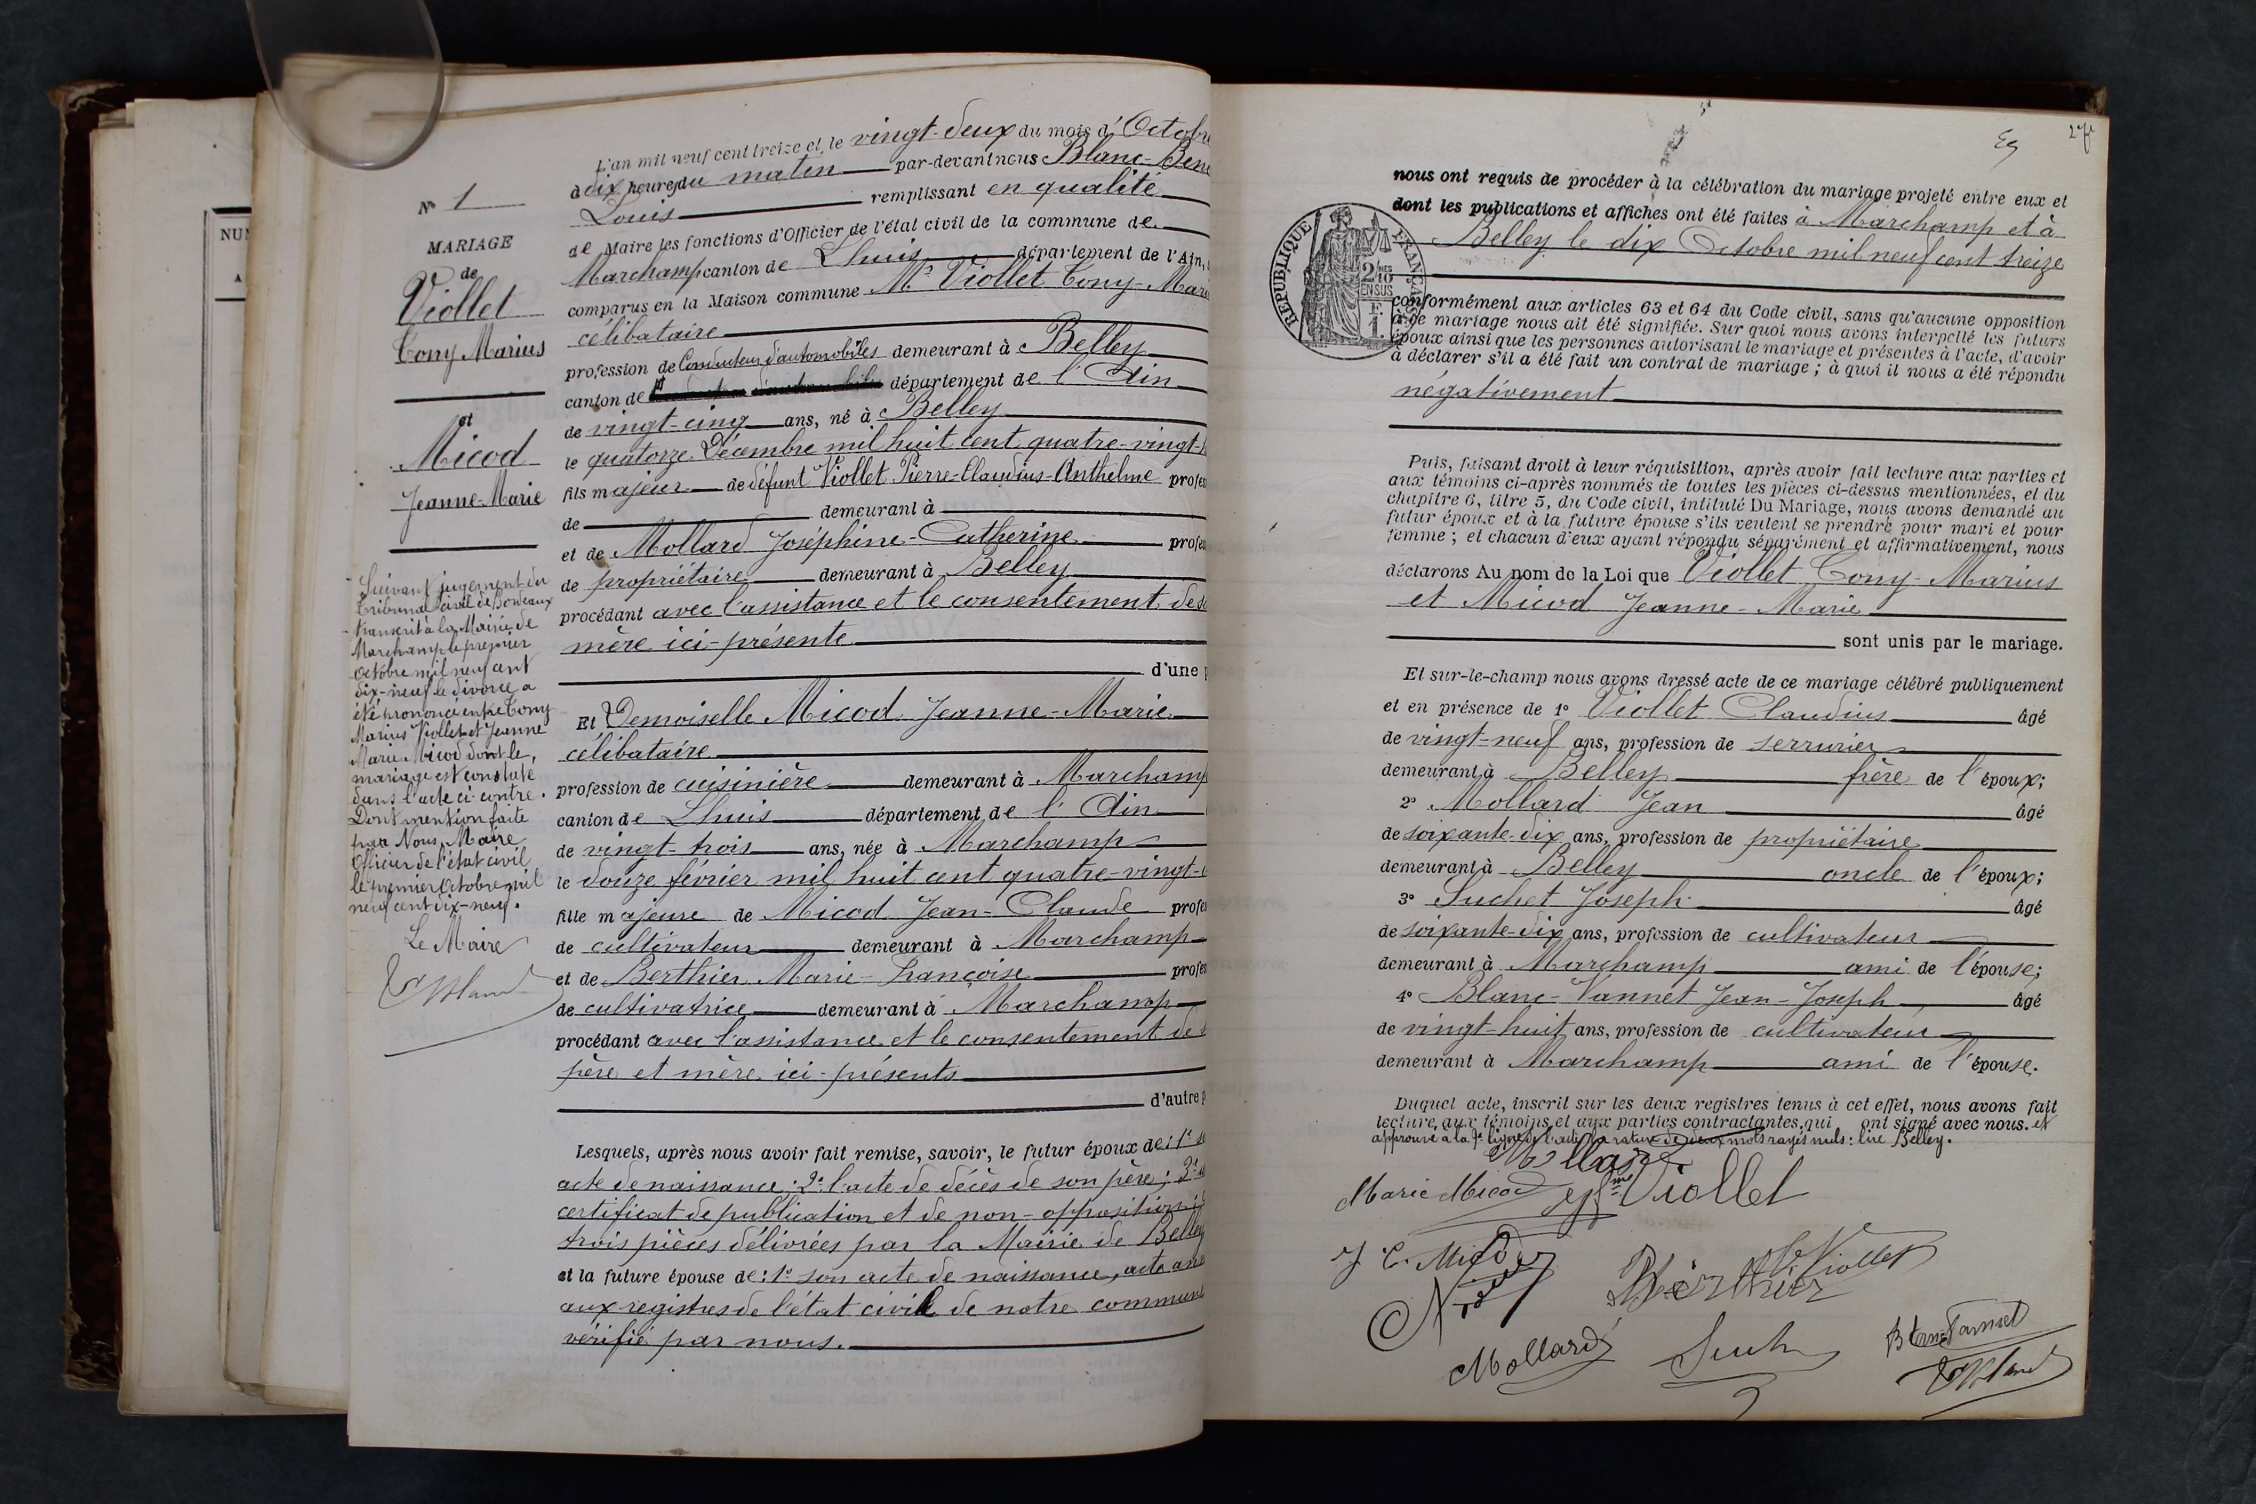 Nº 1
MARIAGE
de
Viollet
Tony Marius
et
Micod
Jeanne-Marie
Suivant jugement du
tribunal civil de Bordeaux
transcrit à la Mairie de
Marchamp le premier
octobre mil neuf cent
dix-neuf le divorce a
été prononcé entre Tony
Marius Viollet et Jeanne
Marie Micod dont le
mariage est constaté
dans l'acte ci-contre.
Dont mention faite
par Nous Maire
Officier de l'état civil
le premier Octobre mil
neuf cent dix-neuf.
Le Maire
NU
A
L'an mil neuf cent treize et le vingt-deux du mois d'Octobre
à dix heures du matin par-devant nous Blanc-Bene
Louis remplissant en qualité
de Maire les fonctions d'Officier de l'état civil de la commune de
Marchamp canton de Lhuis département de l'Ain,
comparus en la Maison commune Mr Viollet Tony-Mari
célibataire
profession de Conducteur d'automobiles demeurant à Belley
canton de département de l'Ain
de vingt-cinq ans, né à Belley
le quatorze Décembre mil huit cent quatre-vingt-
fils majeur de défunt Viollet Pierre-Claudius-Anthelme profes
de demeurant à
et de Mollard Joséphine-Catherine profes
de propriétaire demeurant à Belley
procédant avec l'assistance et le consentement de s
mère ici-présente
d'une p
Et Demoiselle Micod Jeanne-Marie
célibataire
profession de cuisinière demeurant à Marchamp
canton de Lhuis département de l'Ain
de vingt-trois ans, née à Marchamp
le douze février mil huit cent quatre-vingt-
fille majeure de Micod Jean-Claude profes
de cultivateur demeurant à Marchamp
et de Berthier Marie-Françoise profes
de cultivatrice demeurant à Marchamp
procédant avec l'assistance et le consentement de
père et mère ici-présents
d'autre p
Lesquels, après nous avoir fait remise, savoir, le futur époux de: 1º s
acte de naissance; 2º l'acte de décès de son père; 3º u
certificat de publication et de non-opposition
trois pièces délivrées par la Mairie de Belley
et la future épouse de: 1º son acte de naissance, acte ans
aux registres de l'état civil de notre commune
vérifié par nous.
nous ont requis de procéder à la célébration du mariage projeté entre eux et
dont les publications et affiches ont été faites à Marchamp et à
Belley le dix Octobre mil neuf cent treize
RÉPUBLIQUE FRANÇAISE
2/10 EN SUS
F. 1
conformément aux articles 63 et 64 du Code civil, sans qu'aucune opposition
à ce mariage nous ait été signifiée. Sur quoi nous avons interpellé les futurs
époux ainsi que les personnes autorisant le mariage et présentes à l'acte, d'avoir
à déclarer s'il a été fait un contrat de mariage; à quoi il nous a été répondu
négativement
Puis, faisant droit à leur réquisition, après avoir fait lecture aux parties et
aux témoins ci-après nommés de toutes les pièces ci-dessus mentionnées, et du
chapitre 6, titre 5, du Code civil, intitulé Du Mariage, nous avons demandé au
futur époux et à la future épouse s'ils veulent se prendre pour mari et pour
femme; et chacun d'eux ayant répondu séparément et affirmativement, nous
déclarons Au nom de la Loi que Viollet Tony-Marius
et Micod Jeanne-Marie
sont unis par le mariage.
Et sur-le-champ nous avons dressé acte de ce mariage célébré publiquement
et en présence de 1º Viollet Claudius âgé
de vingt-neuf ans, profession de serrurier
demeurant à Belley frère de l'époux;
2º Mollard Jean âgé
de soixante-dix ans, profession de propriétaire
demeurant à Belley oncle de l'époux;
3º Suchet Joseph âgé
de soixante-dix ans, profession de cultivateur
demeurant à Marchamp ami de l'épouse;
4º Blanc-Vannet Jean-Joseph âgé
de vingt-huit ans, profession de cultivateur
demeurant à Marchamp ami de l'épouse.
Duquel acte, inscrit sur les deux registres tenus à cet effet, nous avons fait
lecture aux témoins et aux parties contractantes, qui ont signé avec nous. et
approuvé à la 7e ligne de l'acte la rature de deux mots rayés nuls: lire Belley.
Mollard
Marie Micod
Viollet
J C Micod
Berthier
Viollet
Mollard
Such